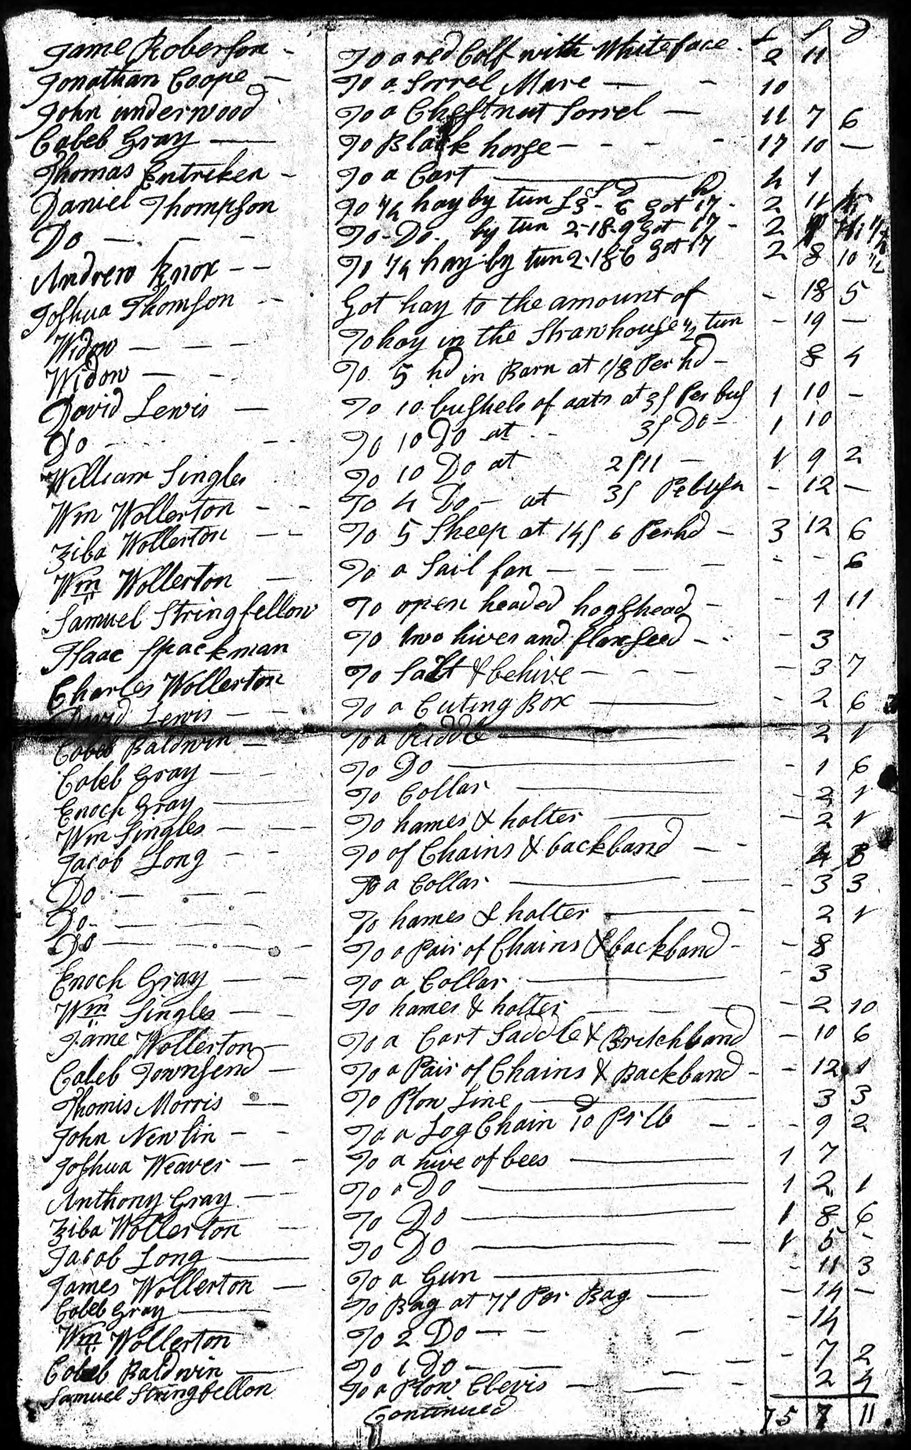 £ S D
Jame Roberson - To a red Calf with White face - 2 11
Jonathan Coope - To a Sorrel Mare - - 10
John underwood To a Chestnut Sorrel - 11 7 6
Caleb Gray - To Black horse - - - - 17 10 -
Thomas Entriken - To a Cart
Daniel Thompson To 1/4 hay by tun Got 17 - 2 11
Do - - - To Do by tun 2-18-9 Got 17 - 2
Andrew Knox - - To 1/4 hay by tun 2-18 6 Got 17 2 8 10 1/2
Joshua Thomson - - Got hay to the amount of - 18 5
Widow - - - To hay in the Strawhouse 1/2 tun - 19 -
Widow - - To 5 hd in Barn at 1/8 Per hd - 8 4
David Lewis - To 10 bushels of oats at 3s Per bus 1 10 -
Do - - - To 10 Do at 3s Do - 1 10
William Singles To 10 Do at 2s11 - 1 9 2
Wm Wollerton - - To 4 Do - at 3s - 12 -
Ziba Wollerton - - To 5 Sheep at 14s 6 Per hd - 3 12 6
Wm Wollerton - To a Sail fan - - - - - - - 6
Samuel Stringfellow To open headed hogshead - - 1 11
Isaac Spackman To two hives and flaxseed - - - 3
Charles Wollerton To Salt & behive - - - - 3 7
David Lewis - - To a Cuting Box - 2 6
Caleb Baldwin - To a Riddle - 2 1
Caleb Gray - To Do - 1 6
Enoch Gray - To Collar - 2 1
Wm Singles - - - To hames & halter - 2 1
Jacob Long - - To of Chains & backband - -
Do - - - - To a Collar - 3 3
Do - - - - To hames & halter - 2 1
Do - - - To a Pair of Chains & backband - - 8
Enoch Gray - To a Collar - 3
Wm Singles - - To hames & halter - - 2 10
Jame Wollerton - To a Cart Saddle & Britchband - 10 6
Caleb Townsend - To a Pair of Chains & Backband - - 12 1
Thomis Morris - - To Plow Line - 3 3
John Newlin - - To a Log Chain 10 Pr lb - - - 9 2
Joshua Weaver - - To a hive of bees - 1 7
Anthony Gray - - To a Do - 1 2 1
Ziba Wollerton - To Do - 1 8 6
Jacob Long - To Do - 1 5 -
James Wollerton - To a Gun - 11 3
Caleb Gray - To Bag at 7s Per Bag - - 14 -
Wm Wollerton To 2 Do - - - - 14
Caleb Baldwin - To 1 Do - - - 7 2
Samuel Stringfellow To a Plow Clevis - - - - 2 4
Continued 75 7 11